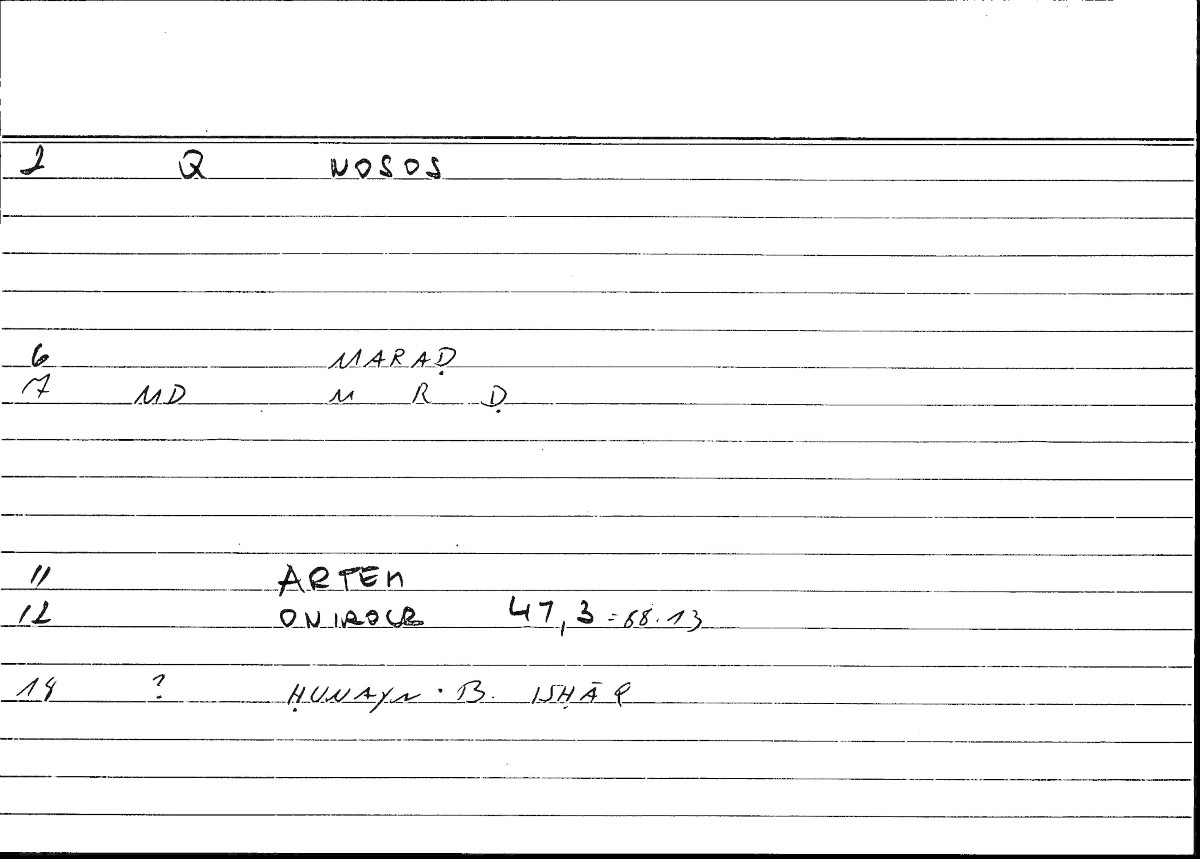 1 Q NOSOS
6 MARAḌ
7 MD M R Ḍ
11 ARTEM
12 ONIROCR 47,3 = 68.13
14 ? ḤUNAYN · B. ISḤĀQ